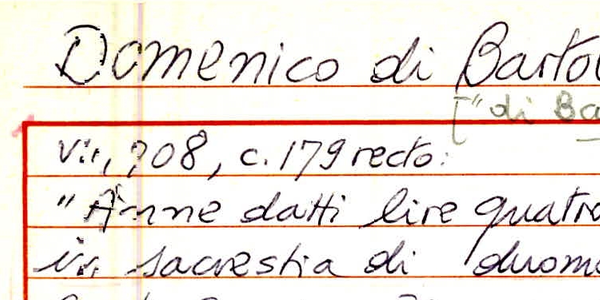 Domenico di Barto
["di Ba
708, c. 179 recto:
"Anne datti lire quatro
in sacrestia di duomo